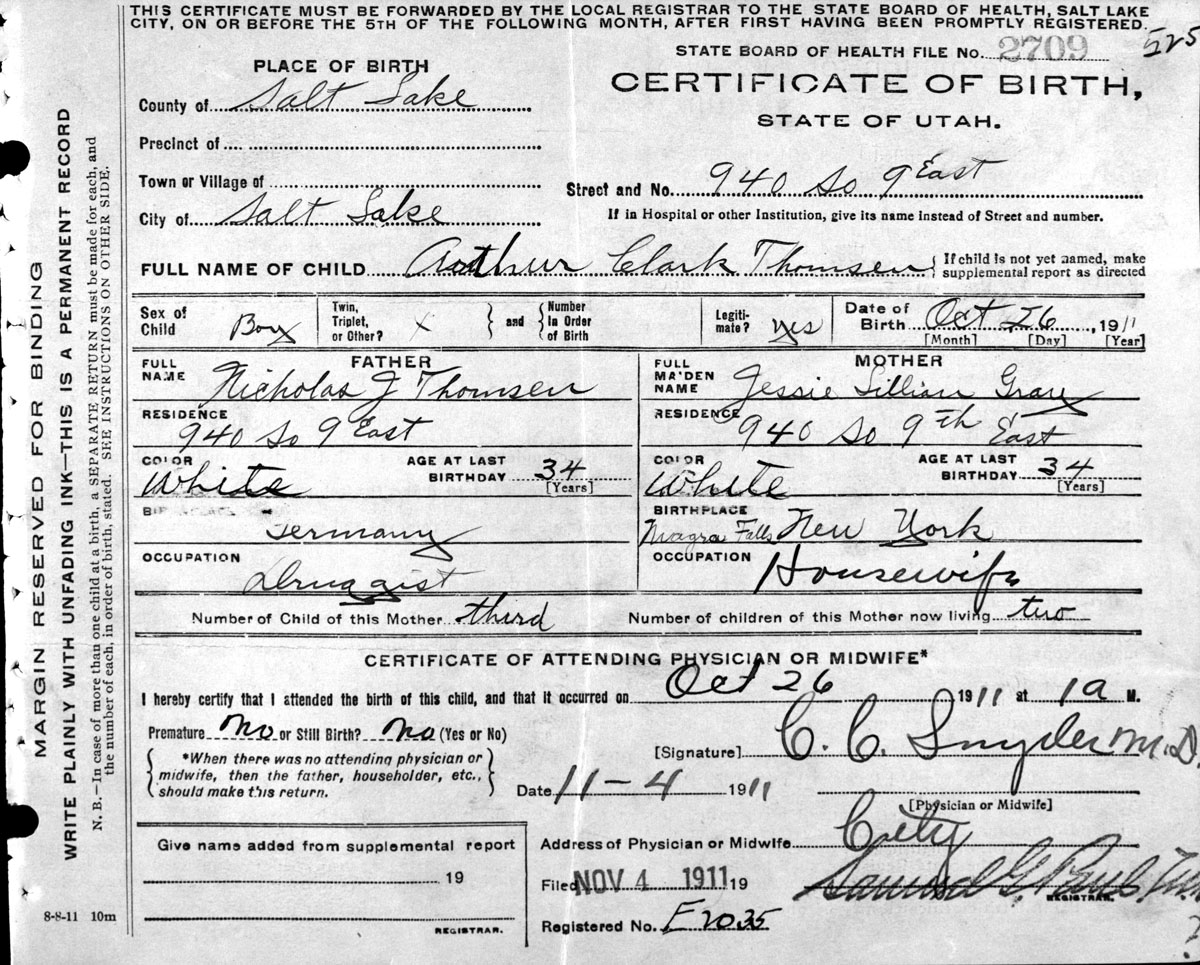 THIS CERTIFICATE MUST BE FORWARDED BY THE LOCAL REGISTRAR TO THE STATE BOARD OF HEALTH, SALT LAKE
CITY, ON OR BEFORE THE 5TH OF THE FOLLOWING MONTH, AFTER FIRST HAVING BEEN PROMPTLY REGISTERED.
525
STATE BOARD OF HEALTH FILE No. 2709
CERTIFICATE OF BIRTH,
STATE OF UTAH.
PLACE OF BIRTH
County of Salt Lake
Precinct of
Town or Village of
City of Salt Lake
Street and No. 940 So 9 East
If in Hospital or other Institution, give its name instead of Street and number.
FULL NAME OF CHILD Arthur Clark Thomsen { If child is not yet named, make
supplemental report as directed
Sex of Child Boy
Twin, Triplet, or Other? x
and { Number In Order of Birth
Legiti-mate? yes
Date of Birth Oct 26, 1911
[Month] [Day] [Year]
FATHER
FULL NAME Nicholas J Thomsen
RESIDENCE
940 So 9 East
COLOR White
AGE AT LAST BIRTHDAY 34
[Years]
BIRTHPLACE
Germany
OCCUPATION
Druggist
MOTHER
FULL MAIDEN NAME Jessie Lillian Gray
RESIDENCE
940 So 9th East
COLOR White
AGE AT LAST BIRTHDAY 34
[Years]
BIRTHPLACE
Niagra Falls New York
OCCUPATION Housewife
Number of Child of this Mother third
Number of children of this Mother now living two
CERTIFICATE OF ATTENDING PHYSICIAN OR MIDWIFE*
I hereby certify that I attended the birth of this child, and that it occurred on Oct 26 1911 at 1 a M.
Premature No or Still Birth? No (Yes or No)
*When there was no attending physician or
midwife, then the father, householder, etc.,
should make this return.
[Signature] C. C. Snyder M.D.
Date 11-4 1911
[Physician or Midwife]
Address of Physician or Midwife City
Filed NOV 4 1911 19
Samuel G. Paul
REGISTRAR.
Registered No. E2035
Give name added from supplemental report
19
REGISTRAR.
8-8-11 10m
MARGIN RESERVED FOR BINDING
WRITE PLAINLY WITH UNFADING INK—THIS IS A PERMANENT RECORD
N. B.—In case of more than one child at a birth, a SEPARATE RETURN must be made for each, and
the number of each, in order of birth, stated. SEE INSTRUCTIONS ON OTHER SIDE.